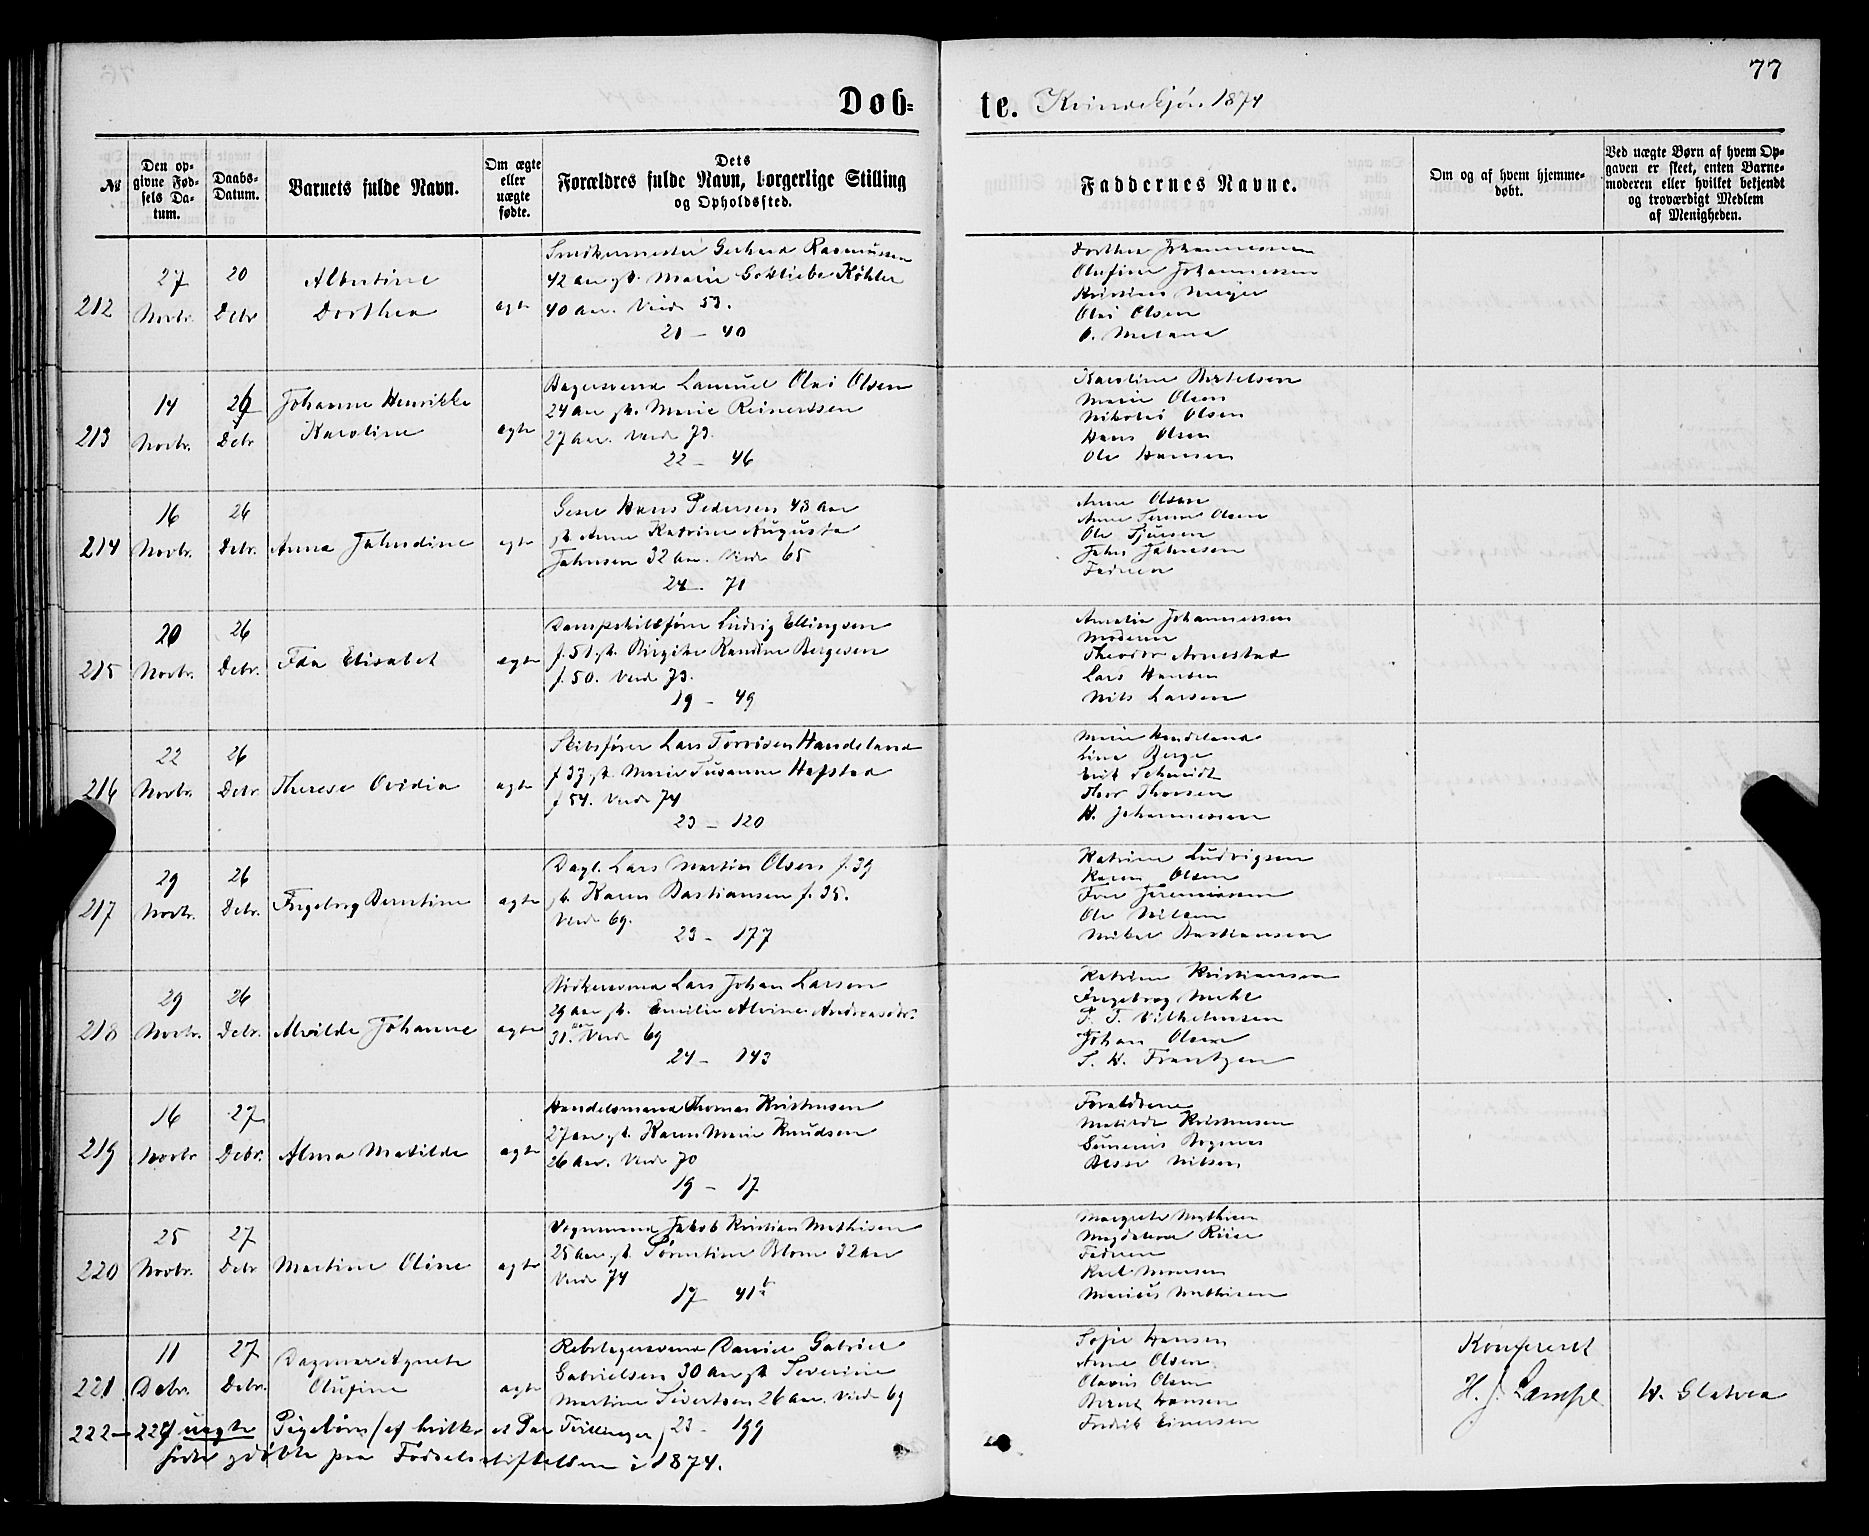 77
Døb-
te. Kvindekjøn 1874
№
Den op-
givne Fød-
sels Da-
tum.
Daabs-
Datum.
Barnets fulde Navn.
Om ægte
eller
uægte
fødte.
Dets
Forældres fulde Navn, borgerlige Stilling
og Opholdssted.
Faddernes Navne.
Om og af hvem hjemme-
døbt.
Ved uægte Børn af hvem Op-
gaven er skeet, enten Barne-
moderen eller hvilket bekjendt
og troværdigt Medlem
af Menigheden.
212
27
Novbr.
20
Debr
Albertine
Dorthea
ægte
Snedkermester Gerhard Rasmussen
42 aar gt. Marie Gottliebe Köhler
40 aar. Viede 53.
21 - 40
Dorthea Johannessen
Olufine Johannessen
Kristine Meyer
Olai Olsen
213
14
Novbr.
26
Debr
Johanne Henrikke
Karoline
ægte
Bagersvend Lauritz Olai Olsen
24 aar gt. Marie Reinertsen
27 aar. Viede 73.
22 - 46
Karoline Bertelsen
Marie Olsen
Nikolai Olsen
Hans Olsen
Ole Hansen
214
16
Novbr.
26
Debr.
Anna Jahndine
ægte
Hans Pedersen 48 aar
gt. Anne Katrine Augusta
Jahnsen 32 aar. Viede 65
24 - 71
Anne Olsen
Anne Serene Olsen
Ole
Jahn Jahnsen
Faderen
215
20
Novbr.
26
Debr.
Ida Elisabet
ægte
Dampskibsfører Ludvig Ellingsen
f. 51 gt. Birgithe Randine Bergesen
f. 50. Viede 73.
19 - 49
Amalia Johannessen
Moderen
Theodor Arnestad
Lars Hansen
Nils Larsen
216
22
Novbr.
26
Debr
Therese Ovidia
ægte
Skibsfører Lars Handeland
f 37 gt. Marie Susanne Hafstad
f 54. Viede 74
23 - 120
Marie Handeland
Line Berge
Erik Schmidt
Thor Thorsen
H. Johannessen
217
29
Novbr.
26
Debr.
Ingeborg Berntine
ægte
Dagl. Lars Martin Olsen f. 39
gt. Karen Bastiansen f. 35.
Viede 69.
23 - 177
Katrine Ludvigsen
Karen Olsen
Jeremiassen
Ole Nilsen
Mikal Bastiansen
218
29
Novbr.
26
Debr.
Alvilde Johanne
ægte
Bødkersvend Lars Johan Larsen
29 aar gt. Emilie Alvine Andreasdtr.
31 aar. Viede 69
24 - 143
Katrine Kristiansen
Ingeborg
P. T. Vilhelmsen
Johan Olsen
S. H. Frantzen
219
16
Novbr
27
Debr.
Alma Matilde
ægte
Handelsmand Thomas Kristensen
27 aar gt. Karen Marie Knudsen
26 aar. Viede 70
19 - 17
Forældrene
Matilde Kristensen
Nilsen
220
25
Novbr.
27
Debr
Martine Oline
ægte
Vognmand Jakob Kristian Mathisen
25 aar gt. Sørentine Blom 32 aar
Viede 74
17 41
Margrete Mathisen
Magdalene
Faderen
Marius Mathisen
221
11
Debr.
27
Debr.
Dagmar Agnete
Olufine
ægte
Rebslagersvend Daniel Gabriel
Gabrielsen 30 aar gt. Severine
Martine Sivertsen 26 aar. Viede 69
23 - 199
Sofie Hansen
Anne Olsen
Olavus Olsen
Bernt Hansen
Fredrik Einersen
Konfereret
H. J. Lampe
222 - 229 uægte Pigebørn (af hvilke et Par Tvillinger)
fødte & døbte paa Fødselsstiftelsen i 1874.